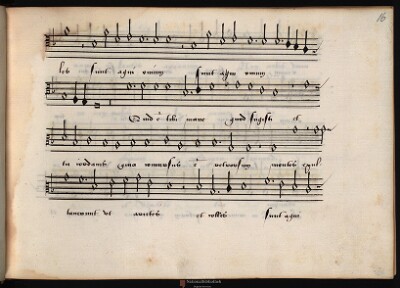 les sicut agni ovium sicut agni ovium
Quid ē tibi mare quod fugisti et
tu iordanis quia conversus ē retrorsum montes exul
taverunt ut arietes et colles sicut agni